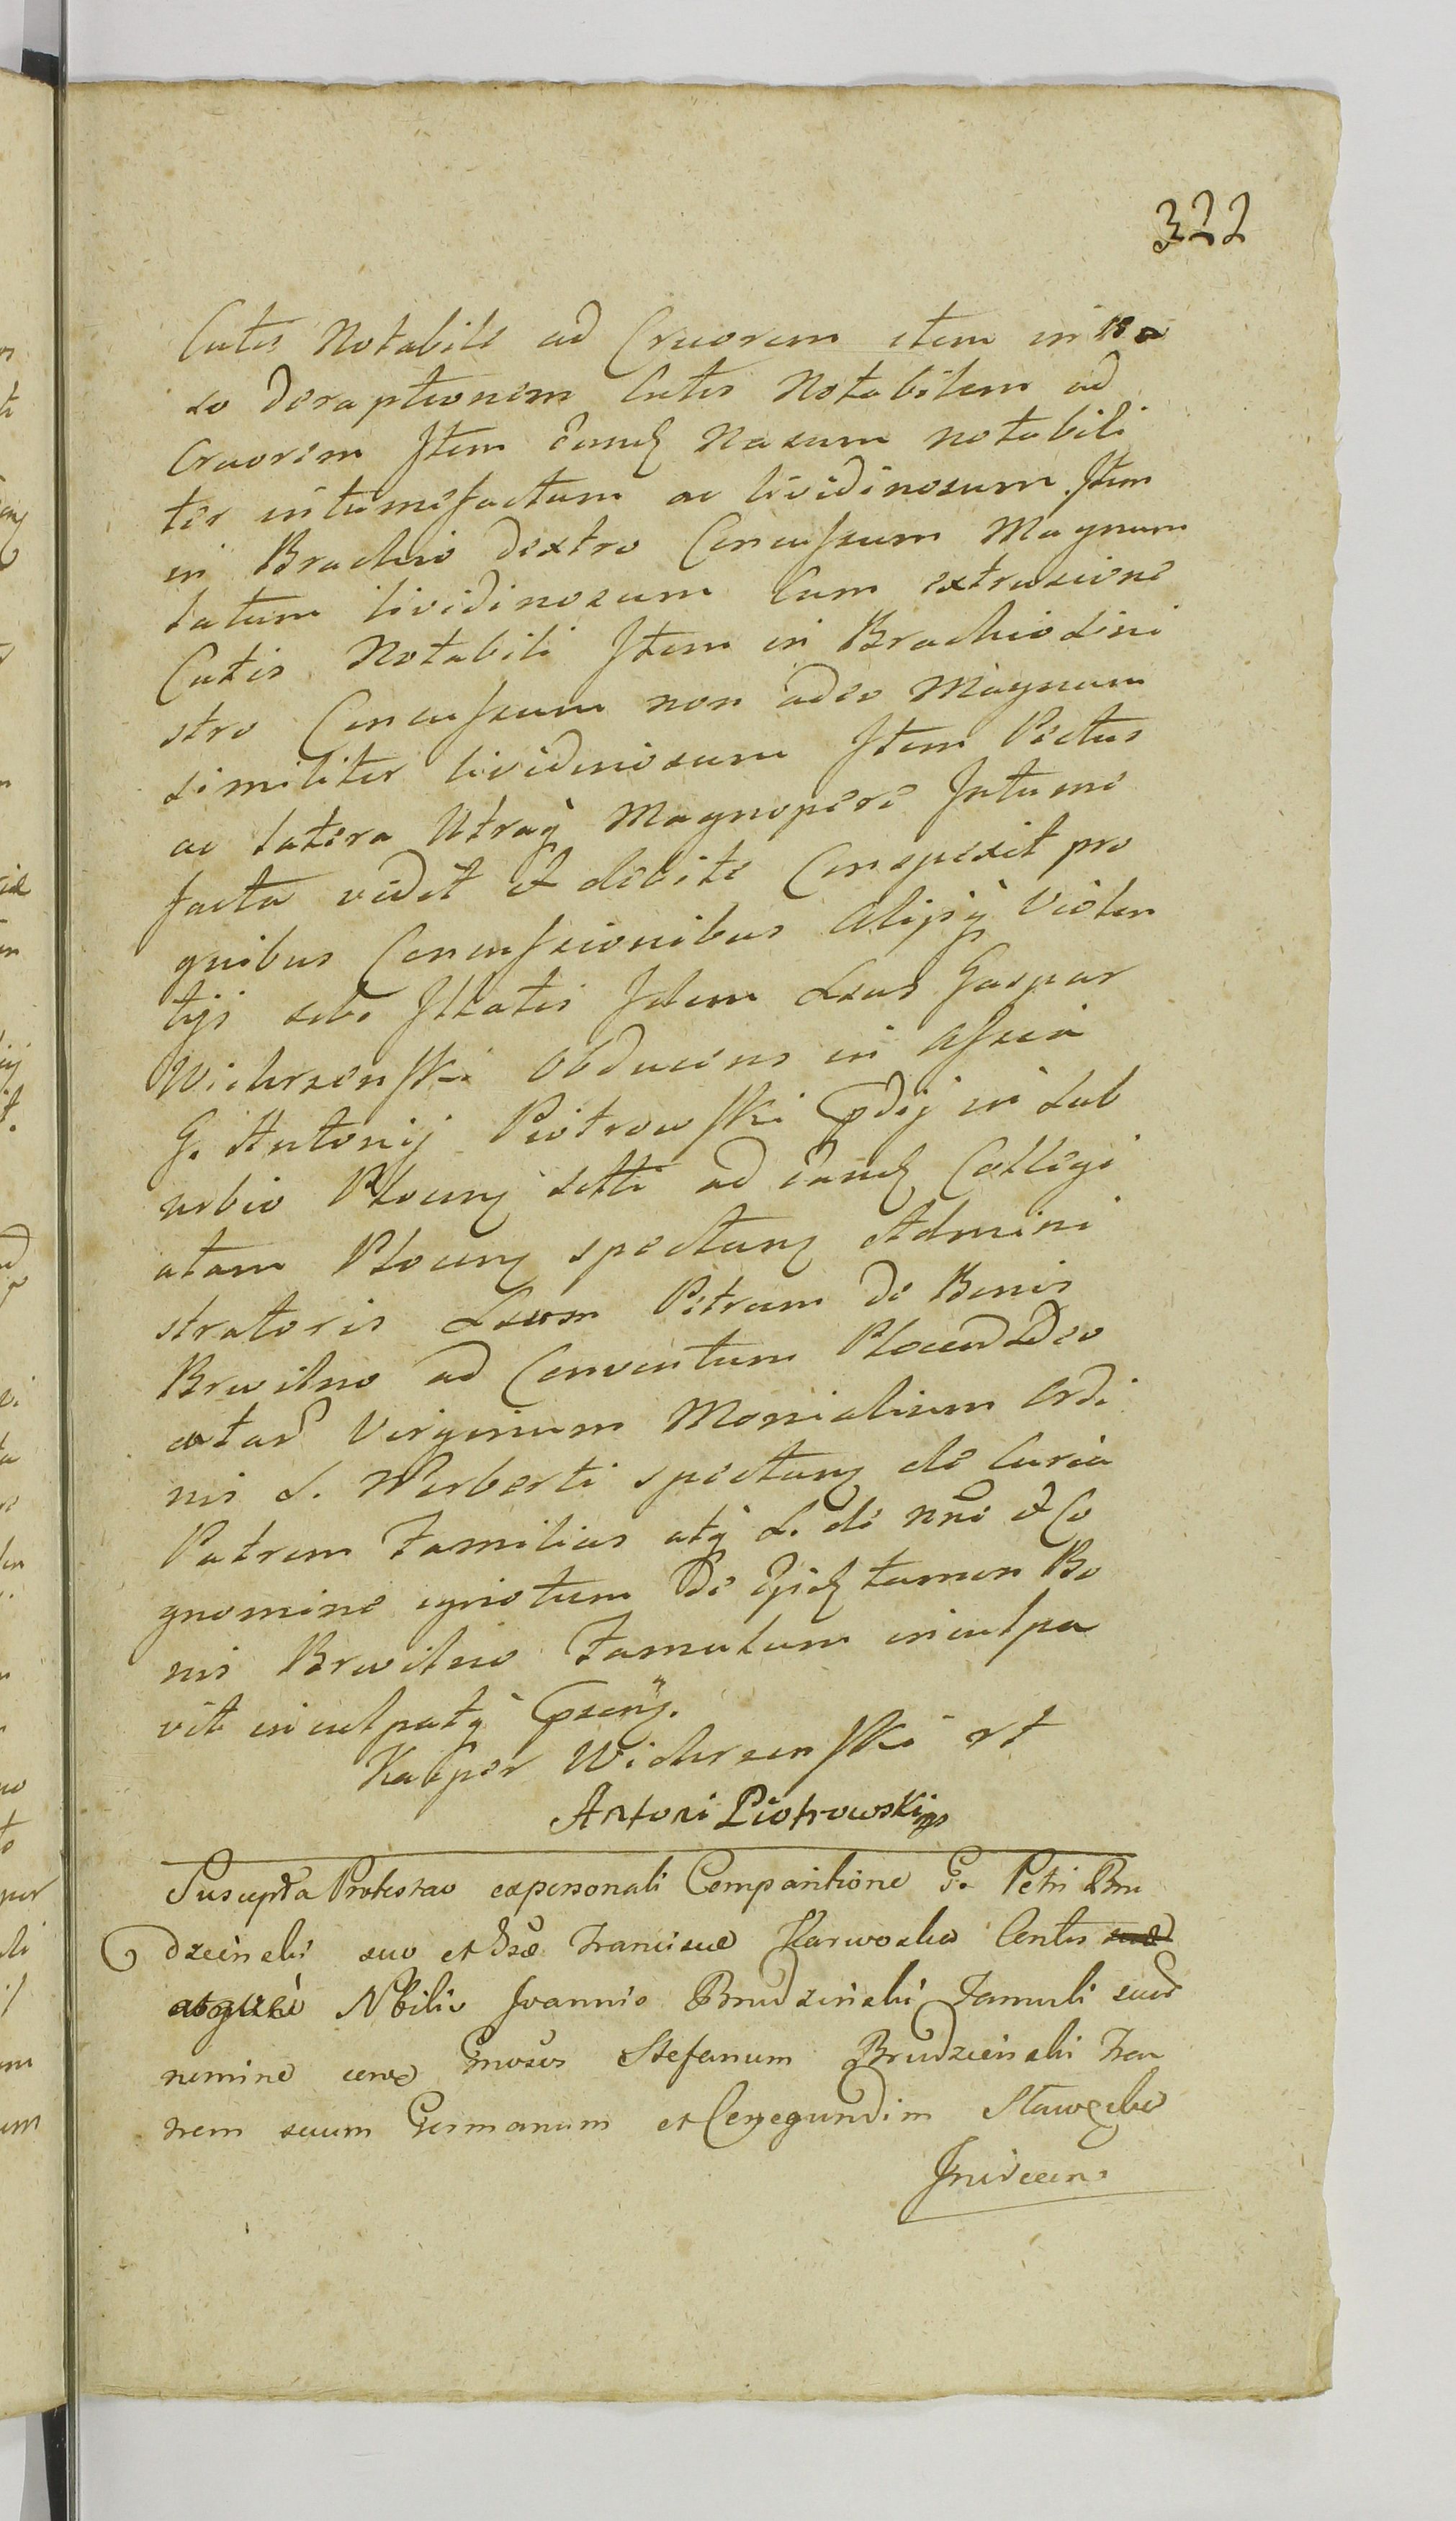 322
Cutis Notabili ad Cruorem item in Na
so deraptionem Cutis Notabilem ad
Cruorem Item eund Nasum notabili
ter intumefactum ac lividinosum. Item
in Brachio dextro Concussum Magnum
latum lividinosum Cum extrusione
Cutis Notabili Item in Brachio Sini
stro Concussum non adeo Magnum
similiter lividinosum Item Pectus
ac latera Utraq Magnopere Intume
facta vidit et debite Conspexit pro
quibus Concussionibus alijsq Violen
tijs sibi Illatis Idem Lsus Gaspar
Wichrzenski Obducens in Assia
G. Antonij Piotrowski Ppdij in Sub
urbio Plocen sitti ad eand Collegi
atam Plocen spectan Admini
stratoris Lsum Petrum de Bonis
Brwilno ad Conventum Plocen Deo
dicatar Virginum Monialium Ordi
nis S. Norberti spectan de Curia
Patrem Familias atq L. de nne et Co
gnomine ignotum de ijsd tamen Bo
nis Brwilno Famulum inculpa
vit inculpatq Psens.
Kasper Wichrzenski rt
Antoni Piotrowski mp
Suscepta Protestao ex personali Comparitione G. Petri Bru
dzeinski suo et Gsae Franciscae Karwoska Contis
Nbilis Joannis Brudzinski Famuli sui
nomine cone Gnosos Stefanum Brudzienski Fra
trem suum Germanum et Cunegundim